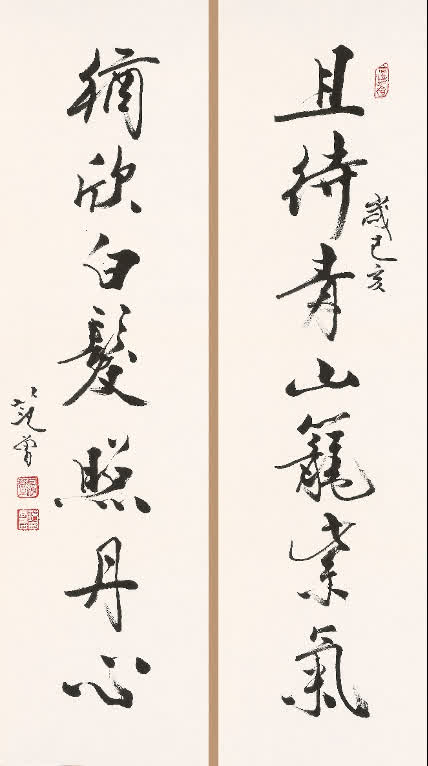 且待青山籠紫氣
歲己亥
猶欣白髮照丹心
范曾